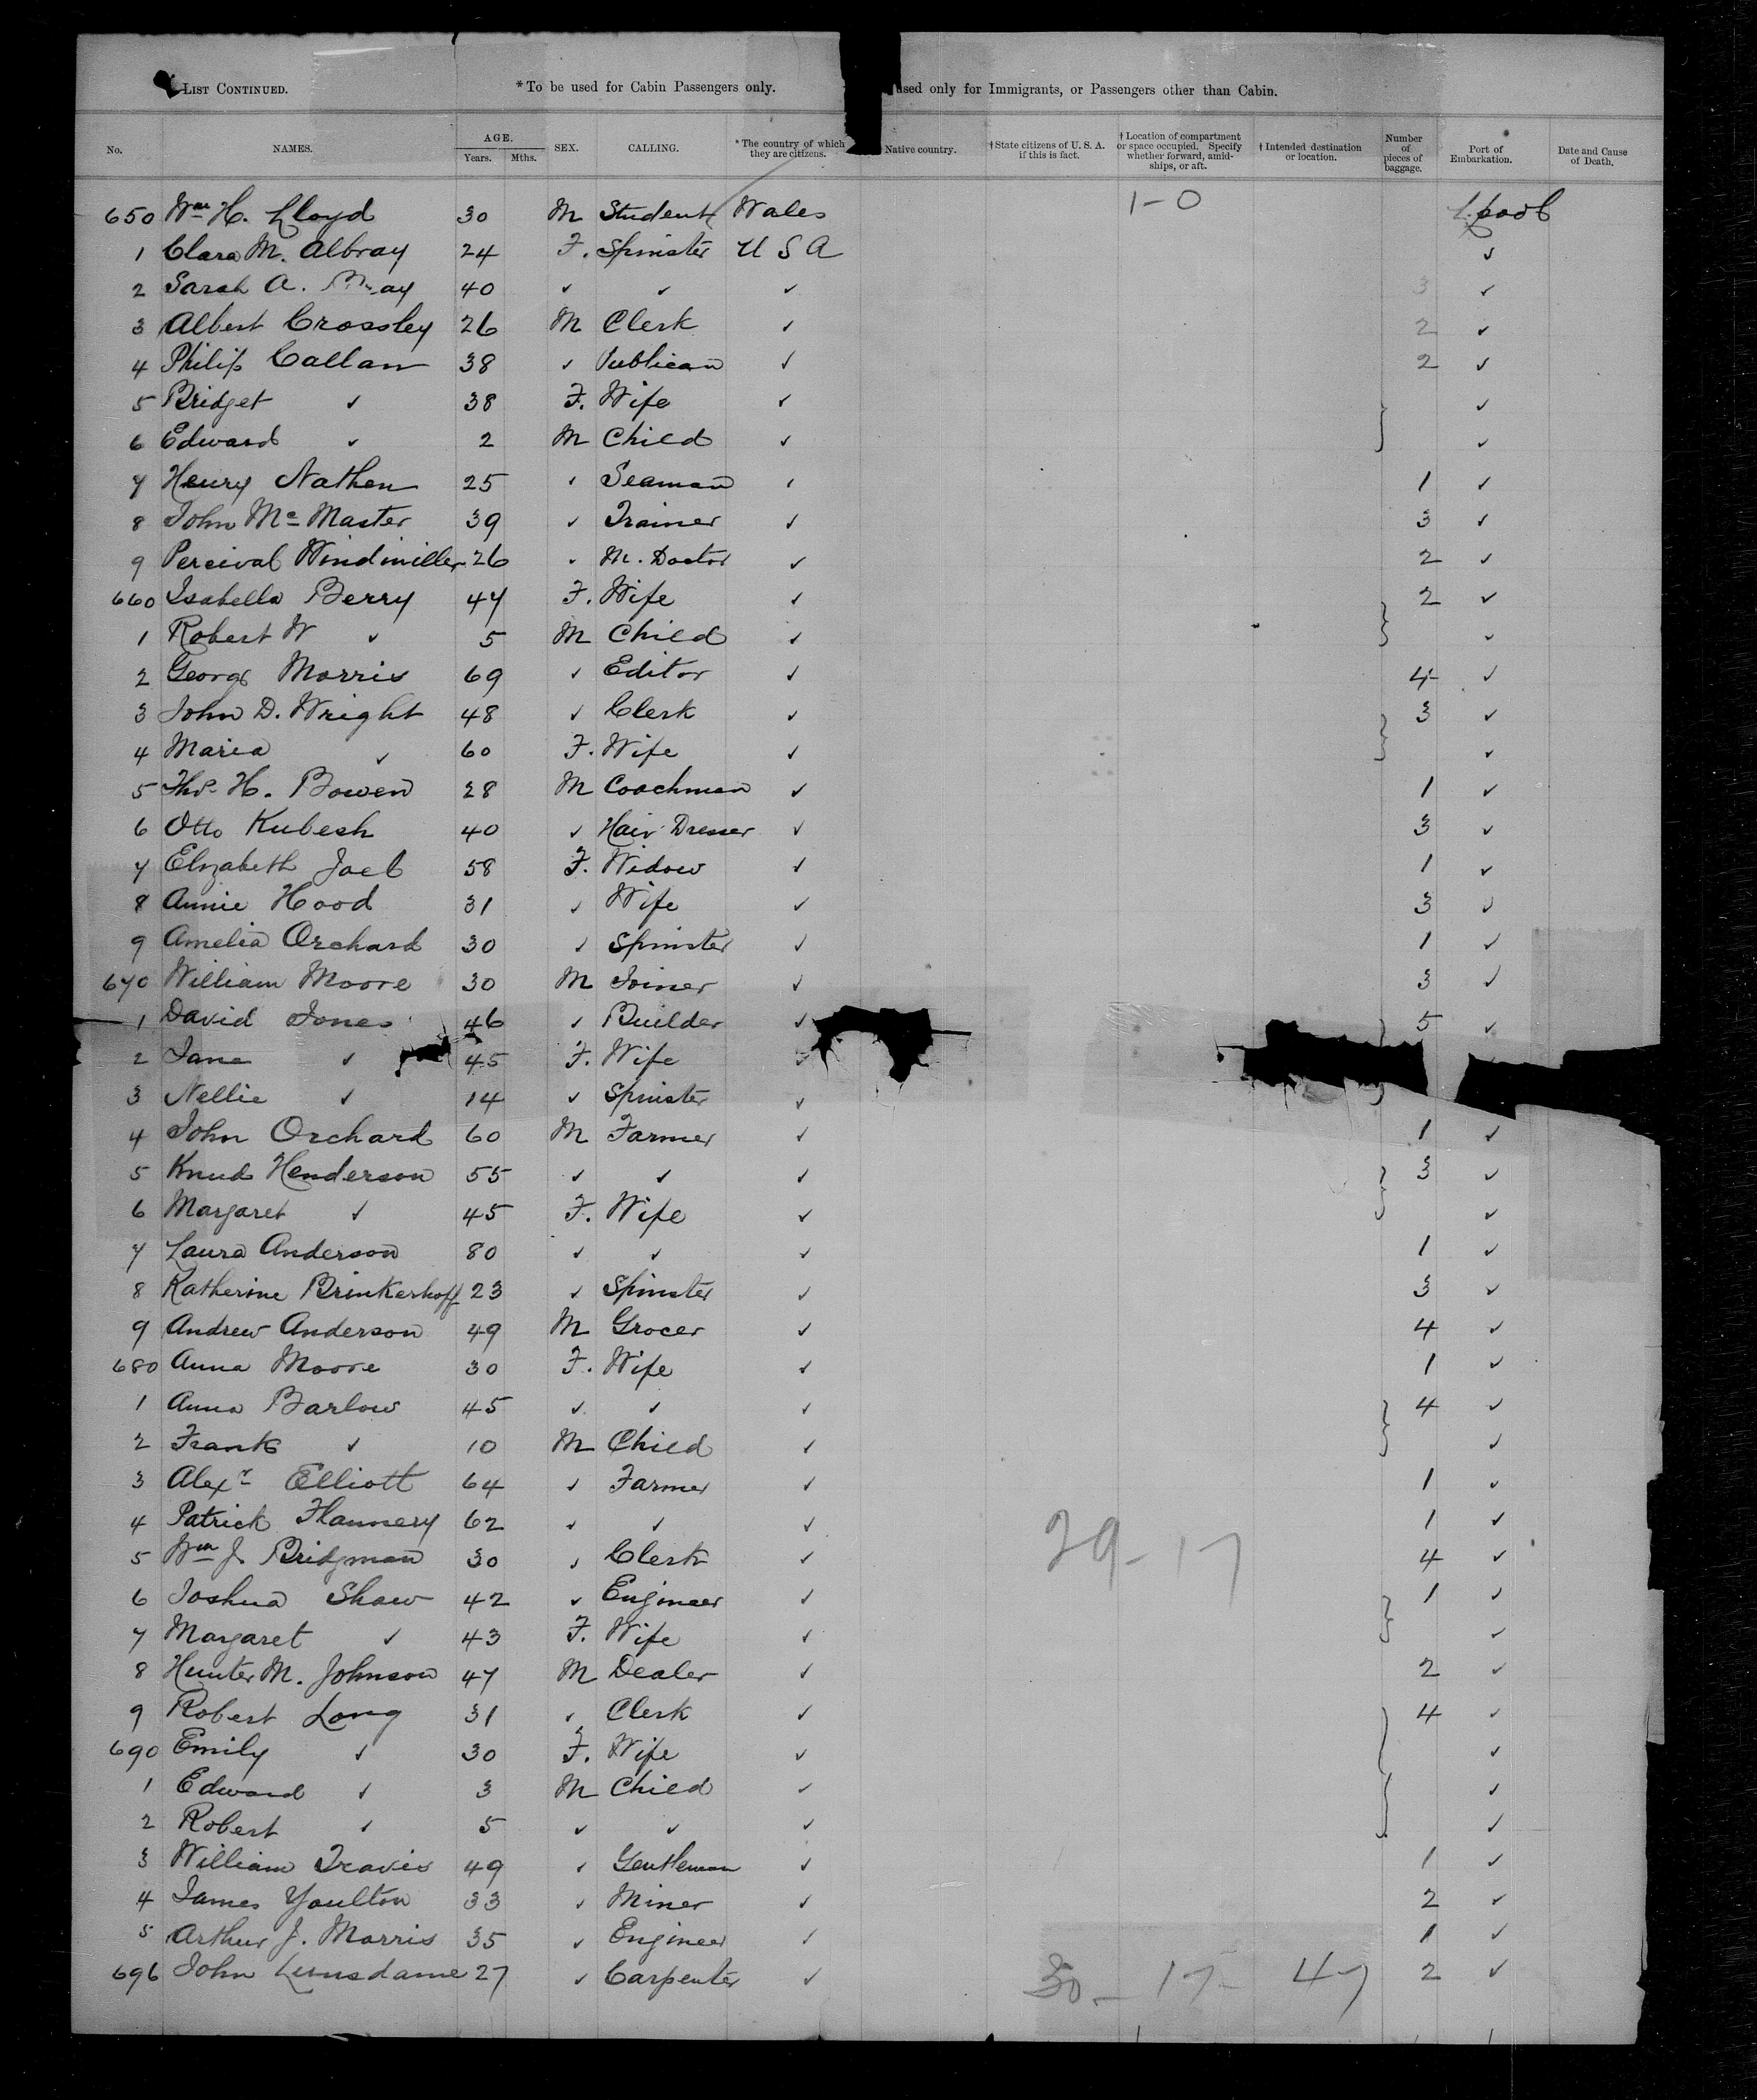 LIST CONTINUED. * To be used for Cabin Passengers only. used only for Immigrants, or Passengers other than Cabin.
No. NAMES. AGE. Years. Mths. SEX. CALLING. * The country of which they are citizens. Native country. † State citizens of U. S. A. if this is fact. † Location of compartment or space occupied. Specify whether forward, amidships, or aft. † Intended destination or location. Number of pieces of baggage. Port of Embarkation. Date and Cause of Death.
650 Wm H. Lloyd 30 M Student Wales 1-0 L.pool
1 Clara M. Albray 24 F. Spinster U S A ✓
2 Sarah A. 40 ✓ ✓ ✓ 3 ✓
3 Albert Crossley 26 M Clerk ✓ 2 ✓
4 Philip Callan 38 ✓ Publican ✓ 2 ✓
5 Bridget ✓ 38 F. Wife ✓ ✓
6 Edward ✓ 2 M Child ✓ ✓
7 Henry Nathen 25 ✓ Seaman ✓ 1 ✓
8 John Mc Master 39 ✓ Trainer ✓ 3 ✓
9 Percival Windmiller 26 ✓ M. Doctor ✓ 2 ✓
660 Isabella Berry 47 F. Wife ✓ 2 ✓
1 Robert W ✓ 5 M Child ✓ ✓
2 George Morris 69 ✓ Editor ✓ 4 ✓
3 John D. Wright 48 ✓ Clerk ✓ 3 ✓
4 Maria ✓ 60 F. Wife ✓ ✓
5 Thos. H. Bowen 28 M Coachman ✓ 1 ✓
6 Otto Kubesh 40 ✓ Hair Dresser ✓ 3 ✓
7 Elizabeth Joel 58 F. Widow ✓ 1 ✓
8 Annie Hood 31 ✓ Wife ✓ 3 ✓
9 Amelia Orchard 30 ✓ Spinster ✓ 1 ✓
670 William Moore 30 M Joiner ✓ 3 ✓
1 David Jones 46 ✓ Builder ✓ 5 ✓
2 Jane ✓ 45 F. Wife ✓
3 Nellie ✓ 14 ✓ Spinster ✓
4 John Orchard 60 M Farmer ✓ 1 ✓
5 Knud Henderson 55 ✓ ✓ ✓ 3 ✓
6 Margaret ✓ 45 F. Wife ✓ ✓
7 Laura Anderson 80 ✓ ✓ ✓ 1 ✓
8 Katherine Brinkerhoff 23 ✓ Spinster ✓ 3 ✓
9 Andrew Anderson 49 M Grocer ✓ 4 ✓
680 Anna Moore 30 F. Wife ✓ 1 ✓
1 Anna Barlow 45 ✓ ✓ ✓ 4 ✓
2 Frank ✓ 10 M Child ✓ ✓
3 Alexr Elliott 64 ✓ Farmer ✓ 1 ✓
4 Patrick Flannery 62 ✓ ✓ ✓ 1 ✓
5 Wm J. Bridgman 30 ✓ Clerk ✓ 29-17 4 ✓
6 Joshua Shaw 42 ✓ Engineer ✓ 1 ✓
7 Margaret ✓ 43 F. Wife ✓ ✓
8 Hunter M. Johnson 47 M Dealer ✓ 2 ✓
9 Robert Long 31 ✓ Clerk ✓ 4 ✓
690 Emily ✓ 30 F. Wife ✓ ✓
1 Edward ✓ 3 M Child ✓ ✓
2 Robert ✓ 5 ✓ ✓ ✓ ✓
3 William Travis 49 ✓ Gentleman ✓ 1 ✓
4 James Youlton 33 ✓ Miner ✓ 2 ✓
5 Arthur J. Morris 35 ✓ Engineer ✓ 1 ✓
696 John Lumsdame 27 ✓ Carpenter ✓ 30- 17- 47 2 ✓